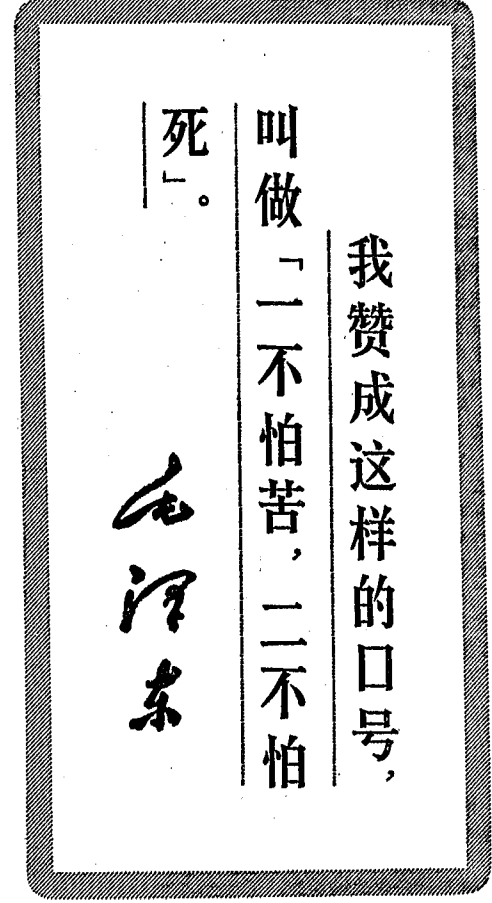 我赞成这样的口号，
叫做「一不怕苦，二不怕
死」。
毛泽东